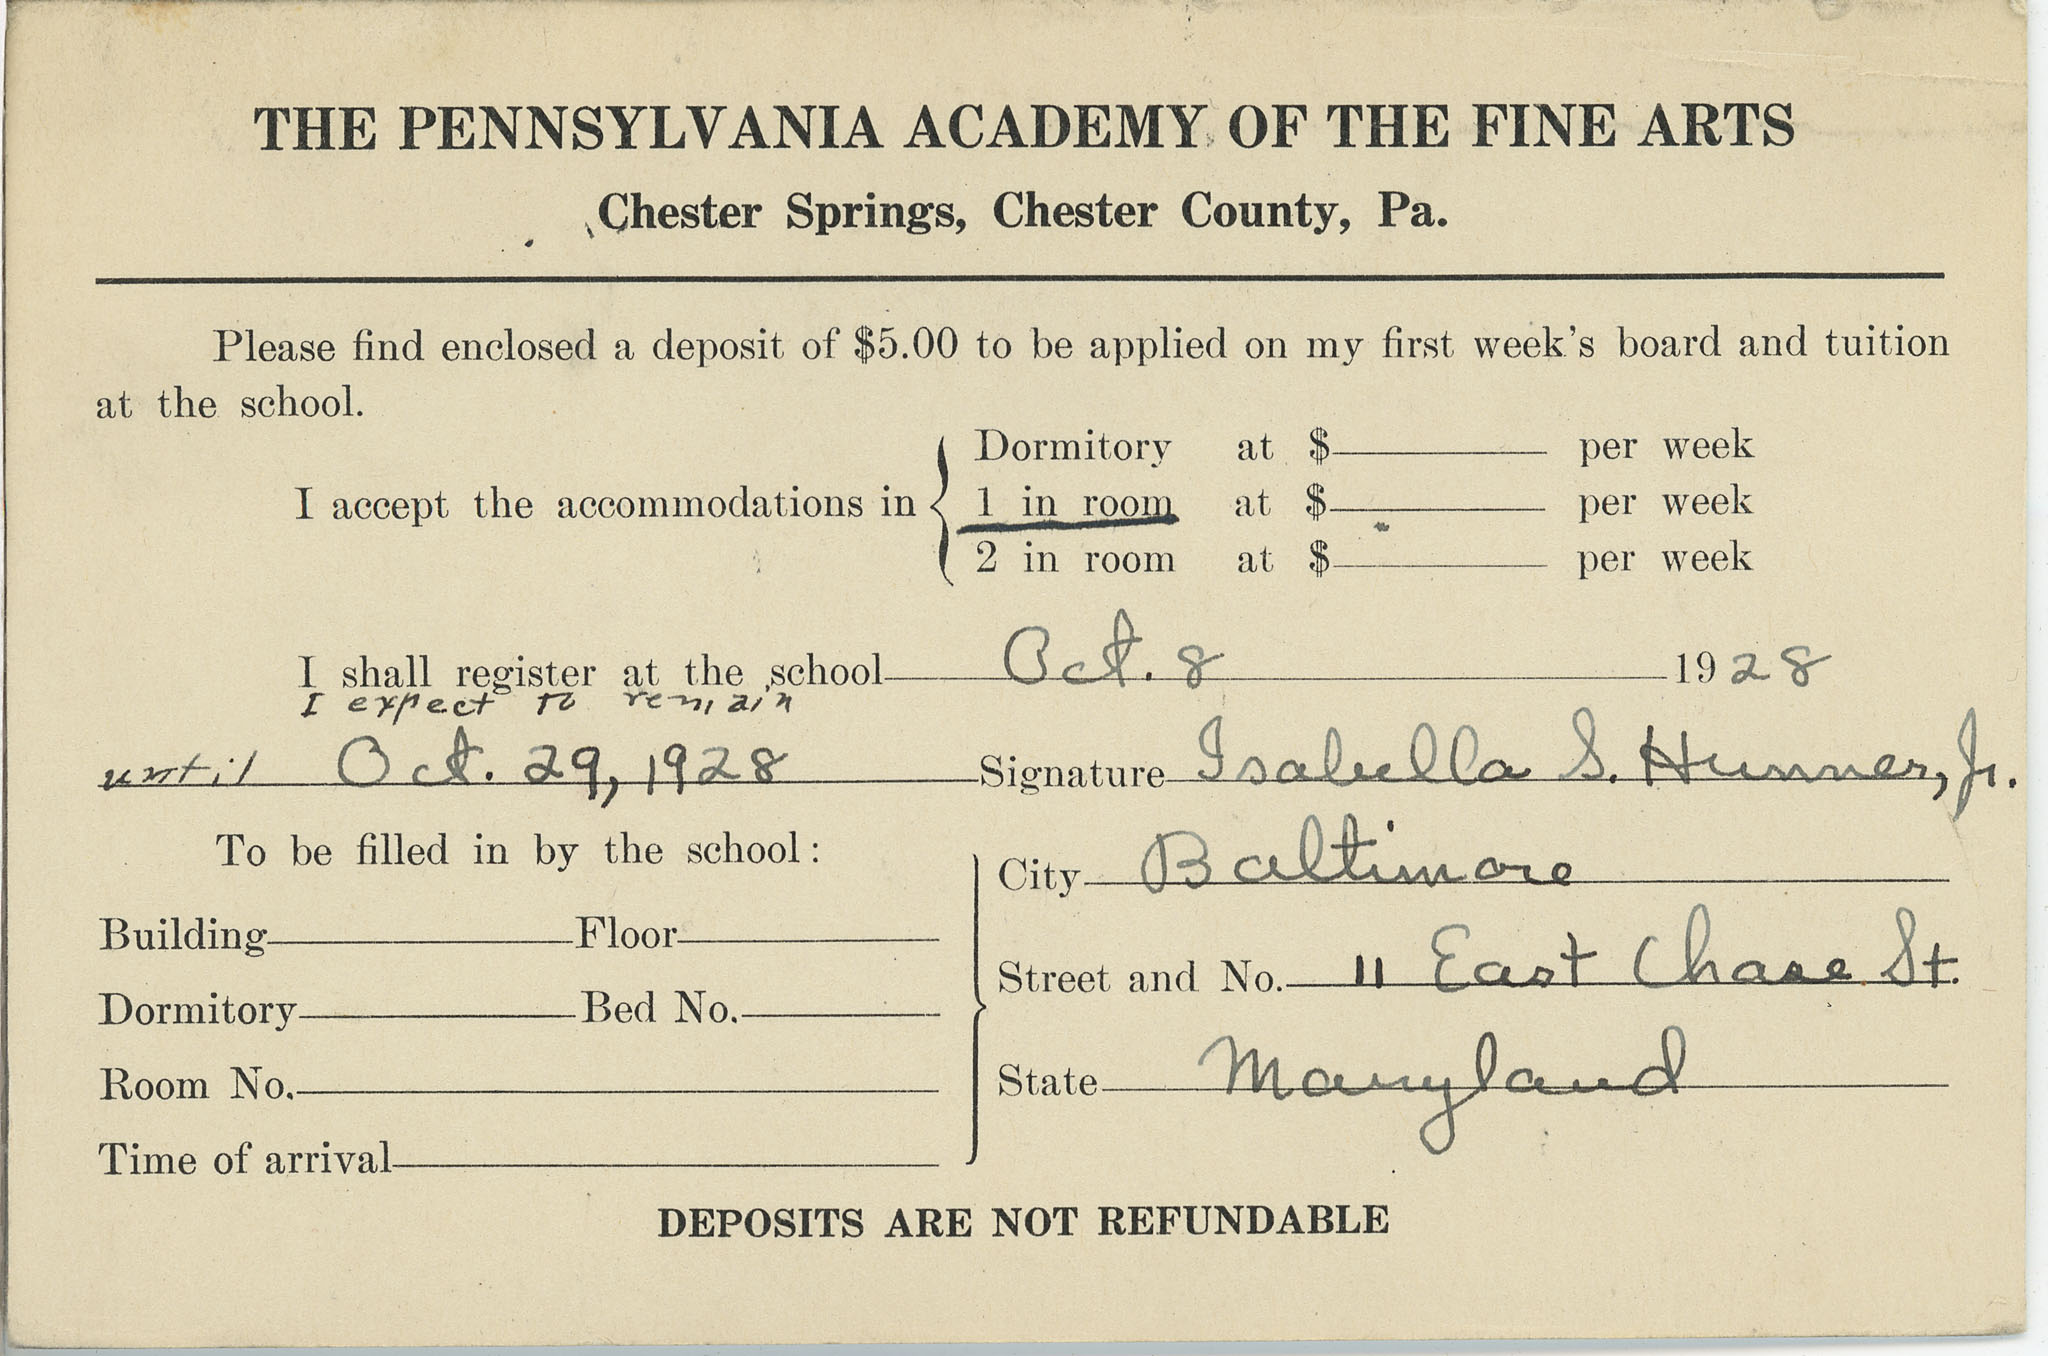 THE PENNSYLVANIA ACADEMY OF THE FINE ARTS
Chester Springs, Chester County, Pa.
Please find enclosed a deposit of $5.00 to be applied on my first week's board and tuition
at the school.
Dormitory at $ per week
I accept the accommodations in 1 in room at $ per week
2 in room at $ per week
I shall register at the school Oct. 8 1928
I expect to remain
until Oct. 29, 1928 Signature Isabella S. Hunner, Jr.
To be filled in by the school:
City Baltimore
Building Floor
Street and No. 11 East Chase St.
Dormitory Bed No.
State Maryland
Room No.
Time of arrival
DEPOSITS ARE NOT REFUNDABLE